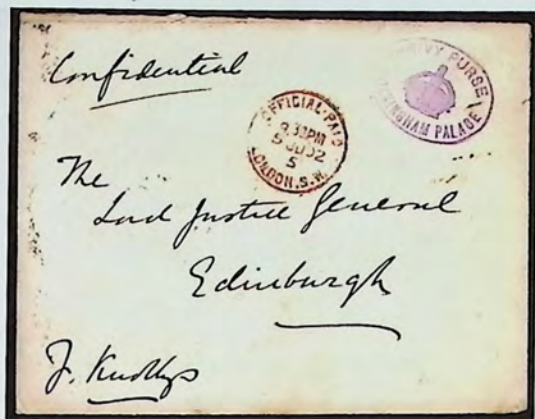 Confidential
PRIVY PURSE
BUCKINGHAM PALACE
OFFICIAL PAID
LONDON. S.W.
The
Lord Justice General
Edinburgh
F. Knollys